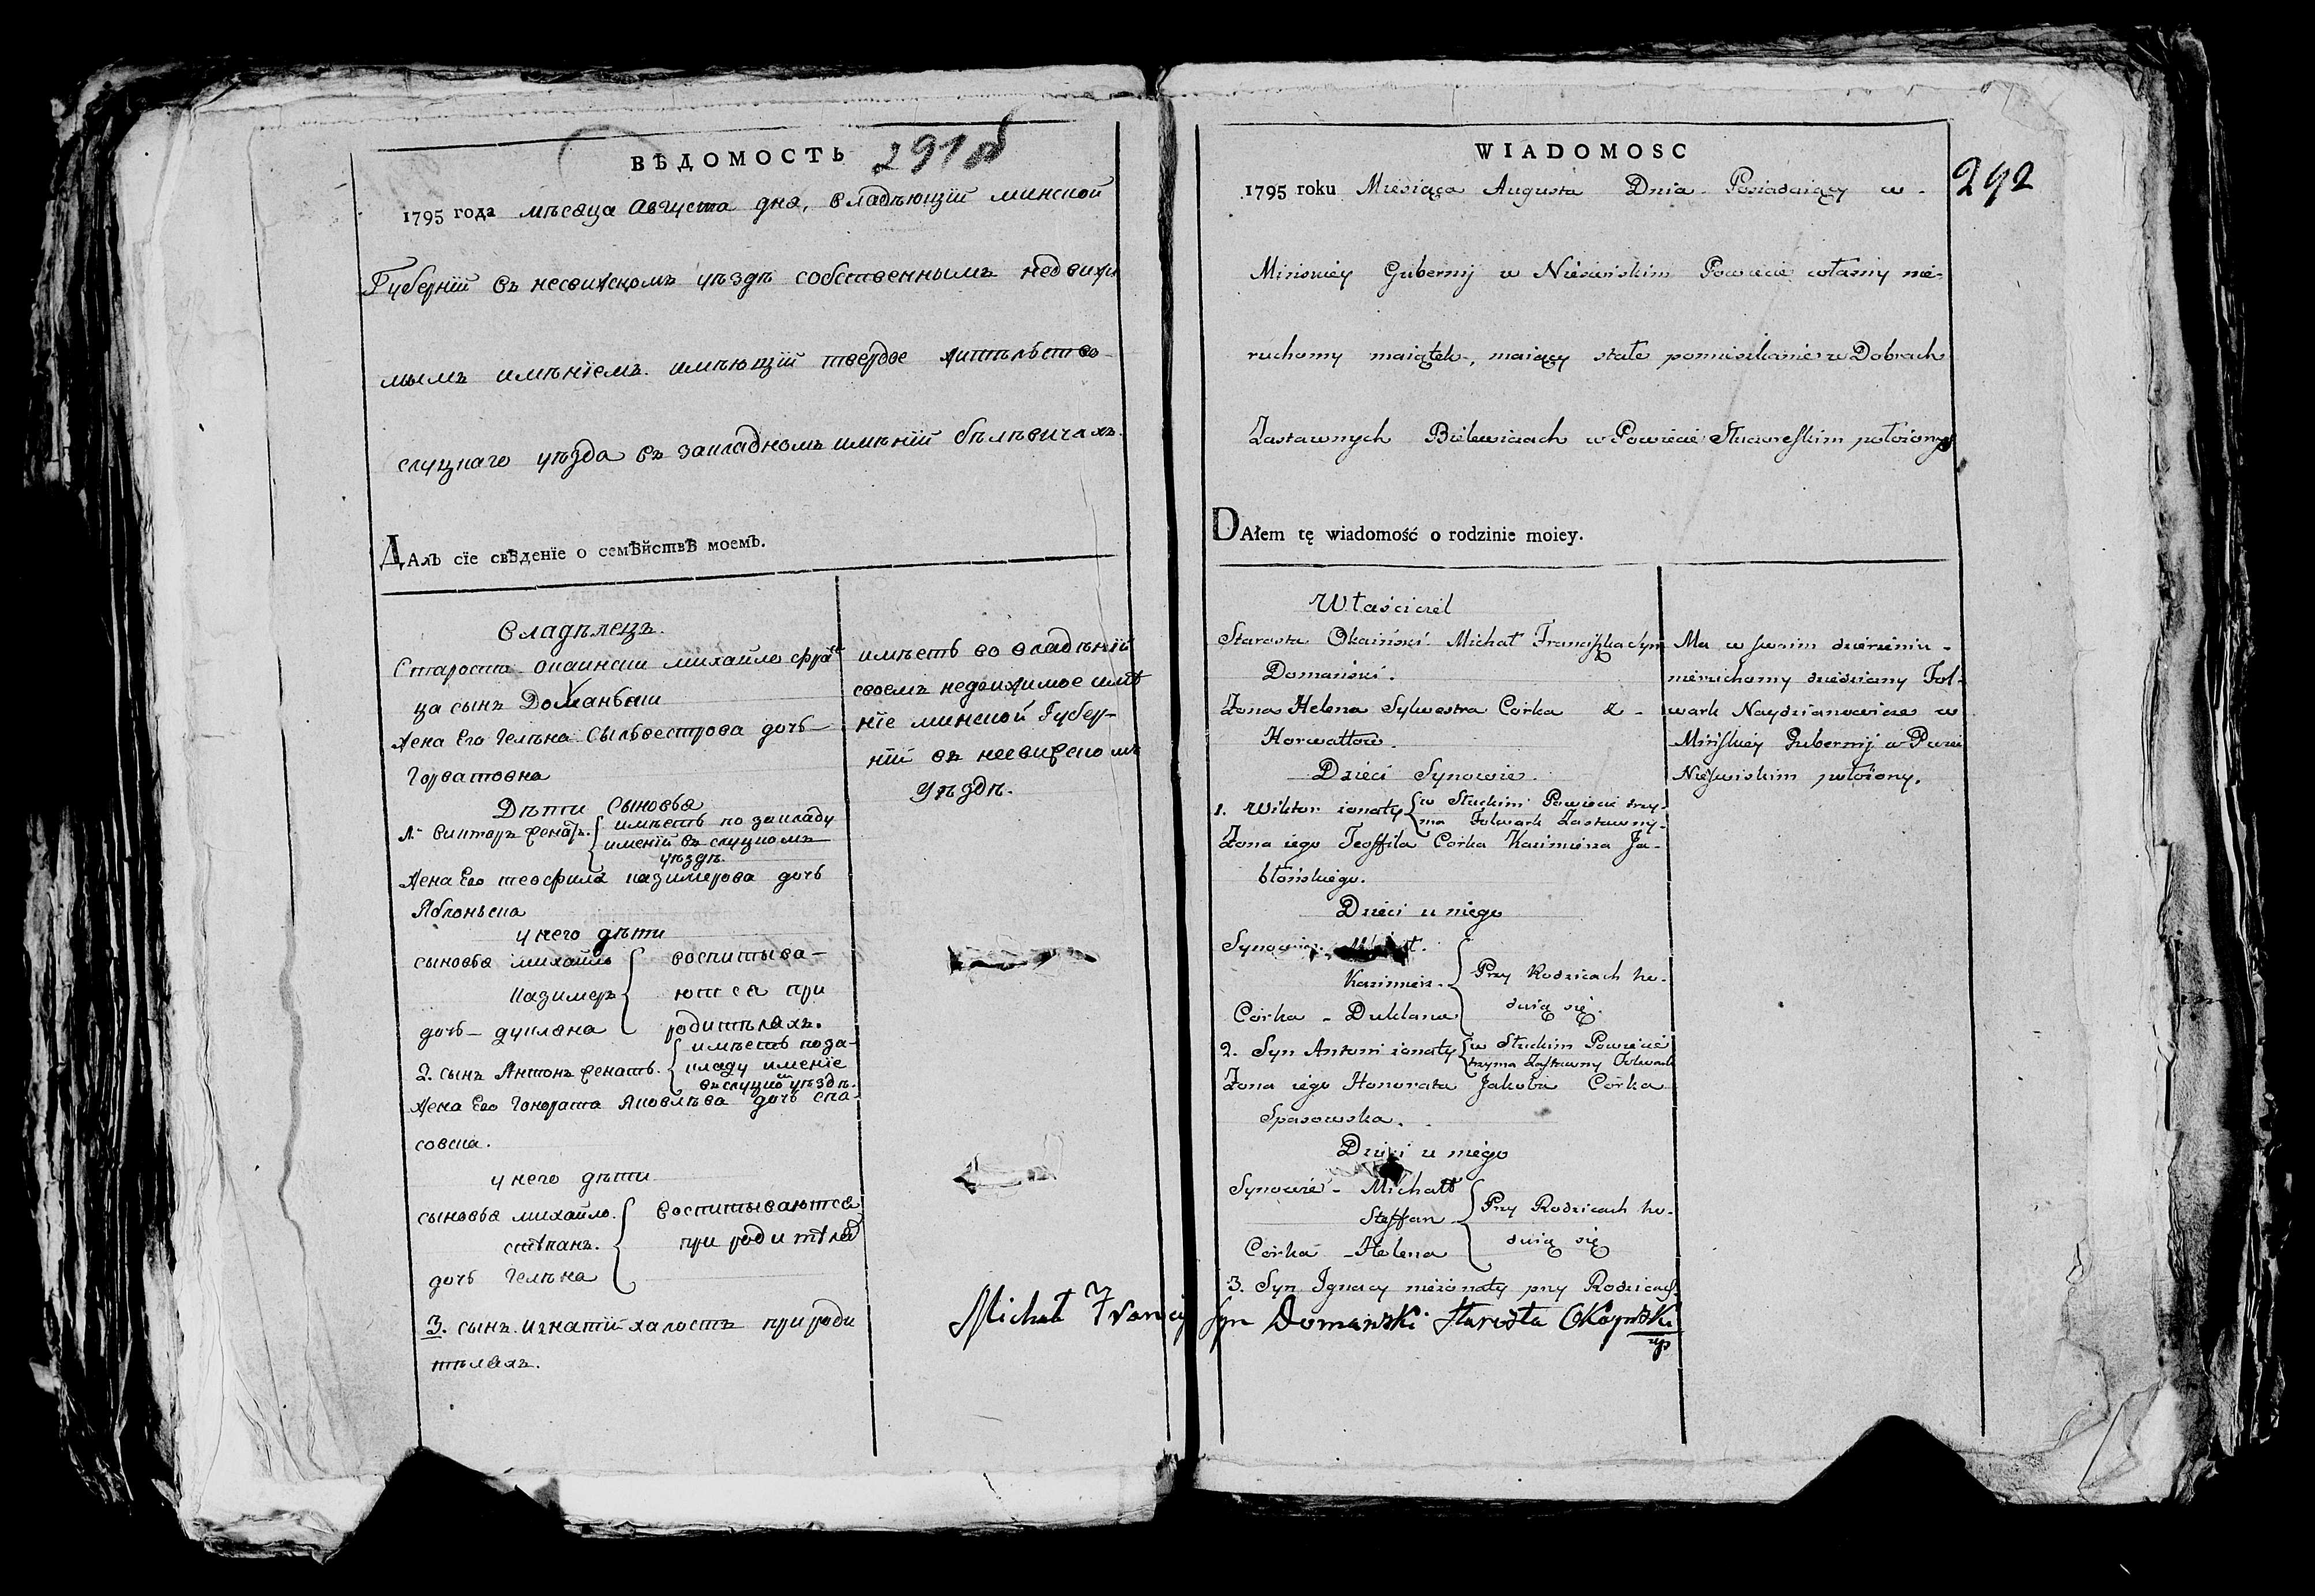 ВѢДОМОСТЬ 291 об
1795 года мѣсяца августа дня, владѣющій минской
Губерніи въ несвижскомъ уѣздѣ собственнымъ недвижи
мымъ имѣніемъ. имѣющій твердое жителство
слуцкаго уѣзда въ закладномъ имѣніи бѣлѣвичахъ
ДАлъ сїе свѣденїе о семѣйствѣ моемъ.
владѣлецъ.
Староста окаински михайло фран
ца сынъ Доманьски
жена Его гелѣна сыльвестрова дочь
горватовна
Дѣти сыновья
1. викторъ женатъ. { имѣетъ по закладу
имѣніи въ слуцкомъ
уѣздѣ.
жена Его теофила казимерова дочь
Яблоньска
у него дѣти
сыновья михайло { воспитыва-
казимеръ ются при
дочь - дуклана родитѣляхъ.
2. сынъ Антонъ женатъ. { имѣетъ по за-
кладу именіе
въ слуцкомъ уѣздѣ.
жена Его гонората яковлѣва дочь спа-
совска.
у него дѣти
сыновья михайло. { воспитываются
стѣпанъ. при родитѣля
дочь гелѣна
3. сынъ игнатій халостъ при роди
тѣляхъ.
имѣетъ во владѣніи
своемъ недвижимое имѣ
ніе минской Губер-
ніи въ несвижскомъ
уѣздѣ.
WIADOMOSC
292
1795 roku Miesiąca Augusta Dnia Posiadaiący w -
Minskiey Gubernij w Nieświskim Powiecie własny nie-
ruchomy maiątek, maiący stałe pomieszkanie w Dobrach
Zastawnych Bielewiczach w Powiecie położonych
DAłem tę wiadomość o rodzinie moiey.
Właściciel
Starosta Okaiński Michał Franciszka Syn
Domański.
Zona Helena Sylwestra Corka z -
Horwattow.
Dzieci Synowie.
1. Wiktor żonaty { w Słuckim Powiecie trzy-
ma Folwark Zastawny.
Zona iego Teoffila Corka Kazimierza Ja-
błońskiego.
Dzieci u niego
Synowie.
Kazimierz. { Przy Rodzicach ho-
Córka - Duklana duią się.
2. Syn Antoni żonaty { w Słuckim Powiecie
trzyma Zastawny Folwark
Zona iego Honorata Jakoba Corka
Spasowska.
Dzieci u niego
Synowie - Michałł
Steffan { Przy Rodzicach ho-
Córka - Helena duią się
3. Syn Ignacy nieżonaty przy Rodzicach.
Ma w swoim dzierzeniu -
nieruchomy dziedziczny Fol-
wark Naydzianowicze w
Mińskiey Gubernij w Powie
Nieświskim położony.
Michał Francis Syn Domański Starosta Okayński
mp